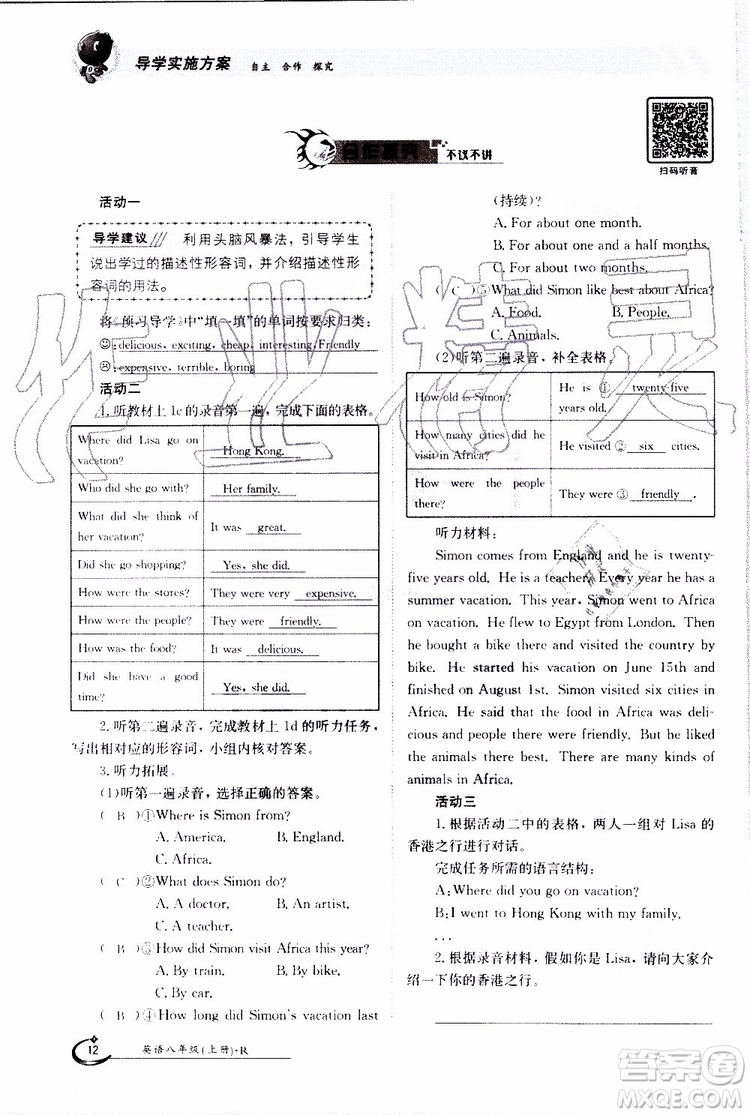 导学实施方案 自主 合作 探究
合作探究 不议不讲
扫码听音
活动一
导学建议 利用头脑风暴法，引导学生
说出学过的描述性形容词，并介绍描述性形
容词的用法。
将《预习导学》中“填一填”的单词按要求归类：
☺: delicious, exciting, cheap, interesting, Friendly
☹: expensive, terrible, boring
活动二
1. 听教材上 1c 的录音第一遍，完成下面的表格。
Where did Lisa go on vacation? Hong Kong.
Who did she go with? Her family.
What did she think of her vacation? It was great.
Did she go shopping? Yes, she did.
How were the stores? They were very expensive.
How were the people? They were friendly.
How was the food? It was delicious.
Did she have a good time? Yes, she did.
2. 听第二遍录音，完成教材上 1d 的听力任务，
写出相对应的形容词，小组内核对答案。
3. 听力拓展。
(1)听第一遍录音，选择正确的答案。
( B )①Where is Simon from?
A. America. B. England.
C. Africa.
( C )②What does Simon do?
A. A doctor. B. An artist.
C. A teacher.
( B )③How did Simon visit Africa this year?
A. By train. B. By bike.
C. By car.
( B )④How long did Simon's vacation last
(持续)?
A. For about one month.
B. For about one and a half months.
C. For about two months.
( C )⑤What did Simon like best about Africa?
A. Food. B. People.
C. Animals.
(2)听第二遍录音，补全表格。
How old is Simon? He is ① twenty-five years old.
How many cities did he visit in Africa? He visited ② six cities.
How were the people there? They were ③ friendly.
听力材料：
Simon comes from England and he is twenty-
five years old. He is a teacher. Every year he has a
summer vacation. This year, Simon went to Africa
on vacation. He flew to Egypt from London. Then
he bought a bike there and visited the country by
bike. He started his vacation on June 15th and
finished on August 1st. Simon visited six cities in
Africa. He said that the food in Africa was deli-
cious and people there were friendly. But he liked
the animals there best. There are many kinds of
animals in Africa.
活动三
1. 根据活动二中的表格，两人一组对 Lisa 的
香港之行进行对话。
完成任务所需的语言结构：
A: Where did you go on vacation?
B: I went to Hong Kong with my family.
...
2. 根据录音材料，假如你是 Lisa，请向大家介
绍一下你的香港之行。
12 英语八年级(上册)·R
作业精灵
答案圈
MXQE.COM